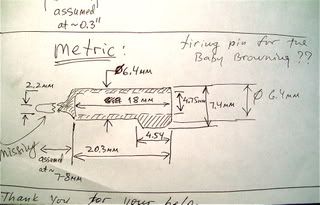 assumed
at ~0.3"
Metric:
firing pin for the
Baby Browning ??
Ø6.4MM
2.2MM
18 MM
4.75MM
7.4MM
Ø 6.4MM
missing
assumed
at ~
7-8MM
4.54
20.3MM
Thank you for your help